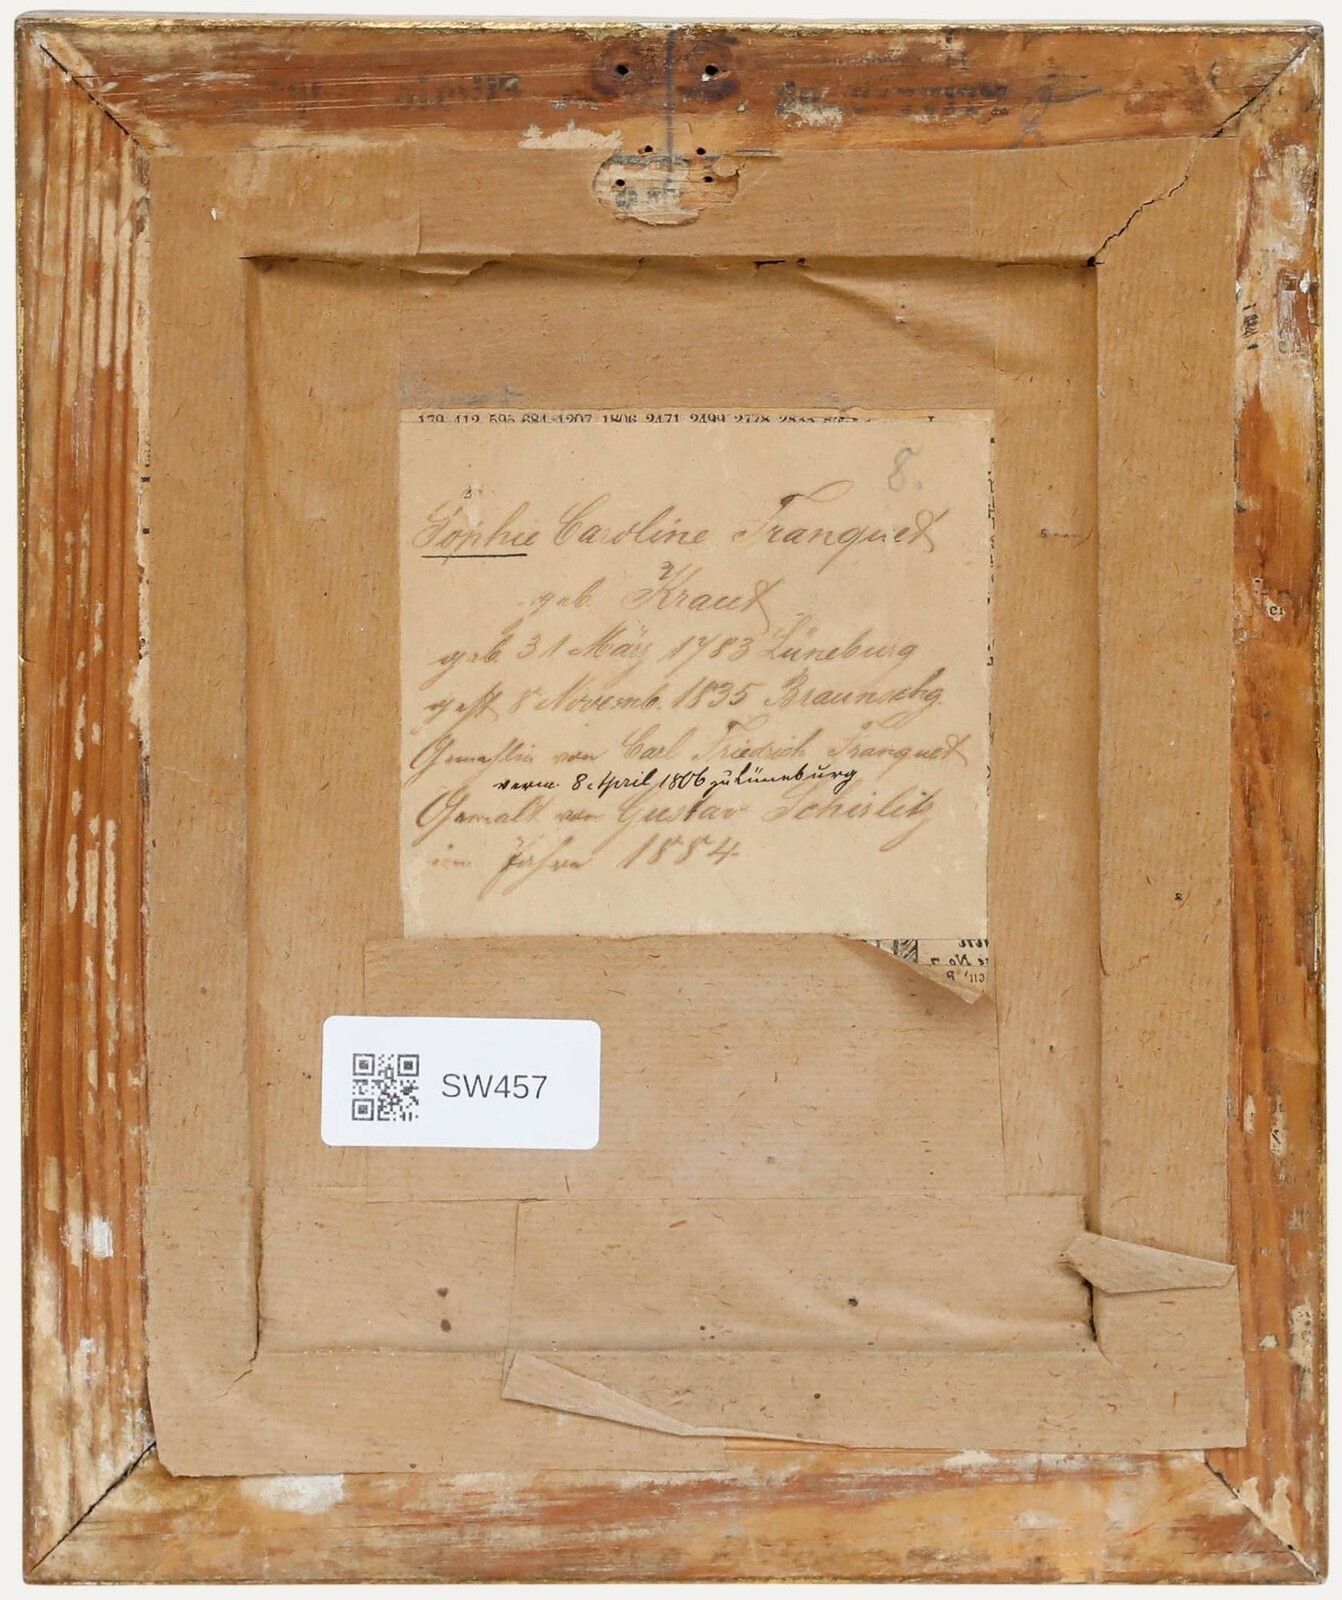 179 412 595 684 1207 1806 2471 2499 2778
8.
Sophie Caroline Tranquet
geb. Kraut
geb 31 März 1783 Lüneburg
gest 8 Novemb. 1835 Braunschg.
Gemahlin von Carl Friedrich Tranquet
verm. 8. April 1806 zu Lüneburg
Gemalt von Gustav
im Jahre 1854
SW457